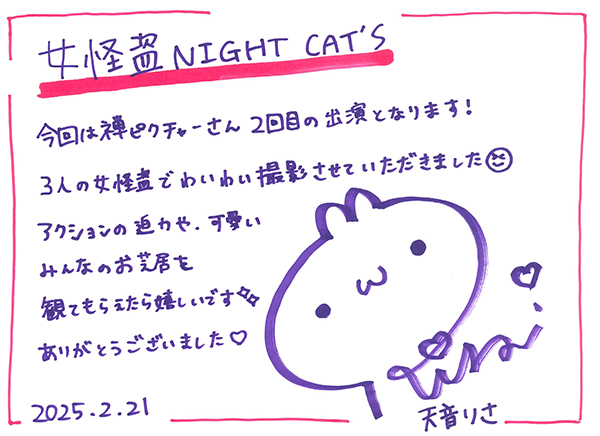 女怪盗 NIGHT CAT'S
今回は禅ピクチャーさん 2回目の出演となります!
3人の女怪盗でわいわい撮影させていただきました
アクションの迫力や、可愛い
みんなのお芝居を
観てもらえたら嬉しいです
ありがとうございました♡
2025.2.21
天音りさ